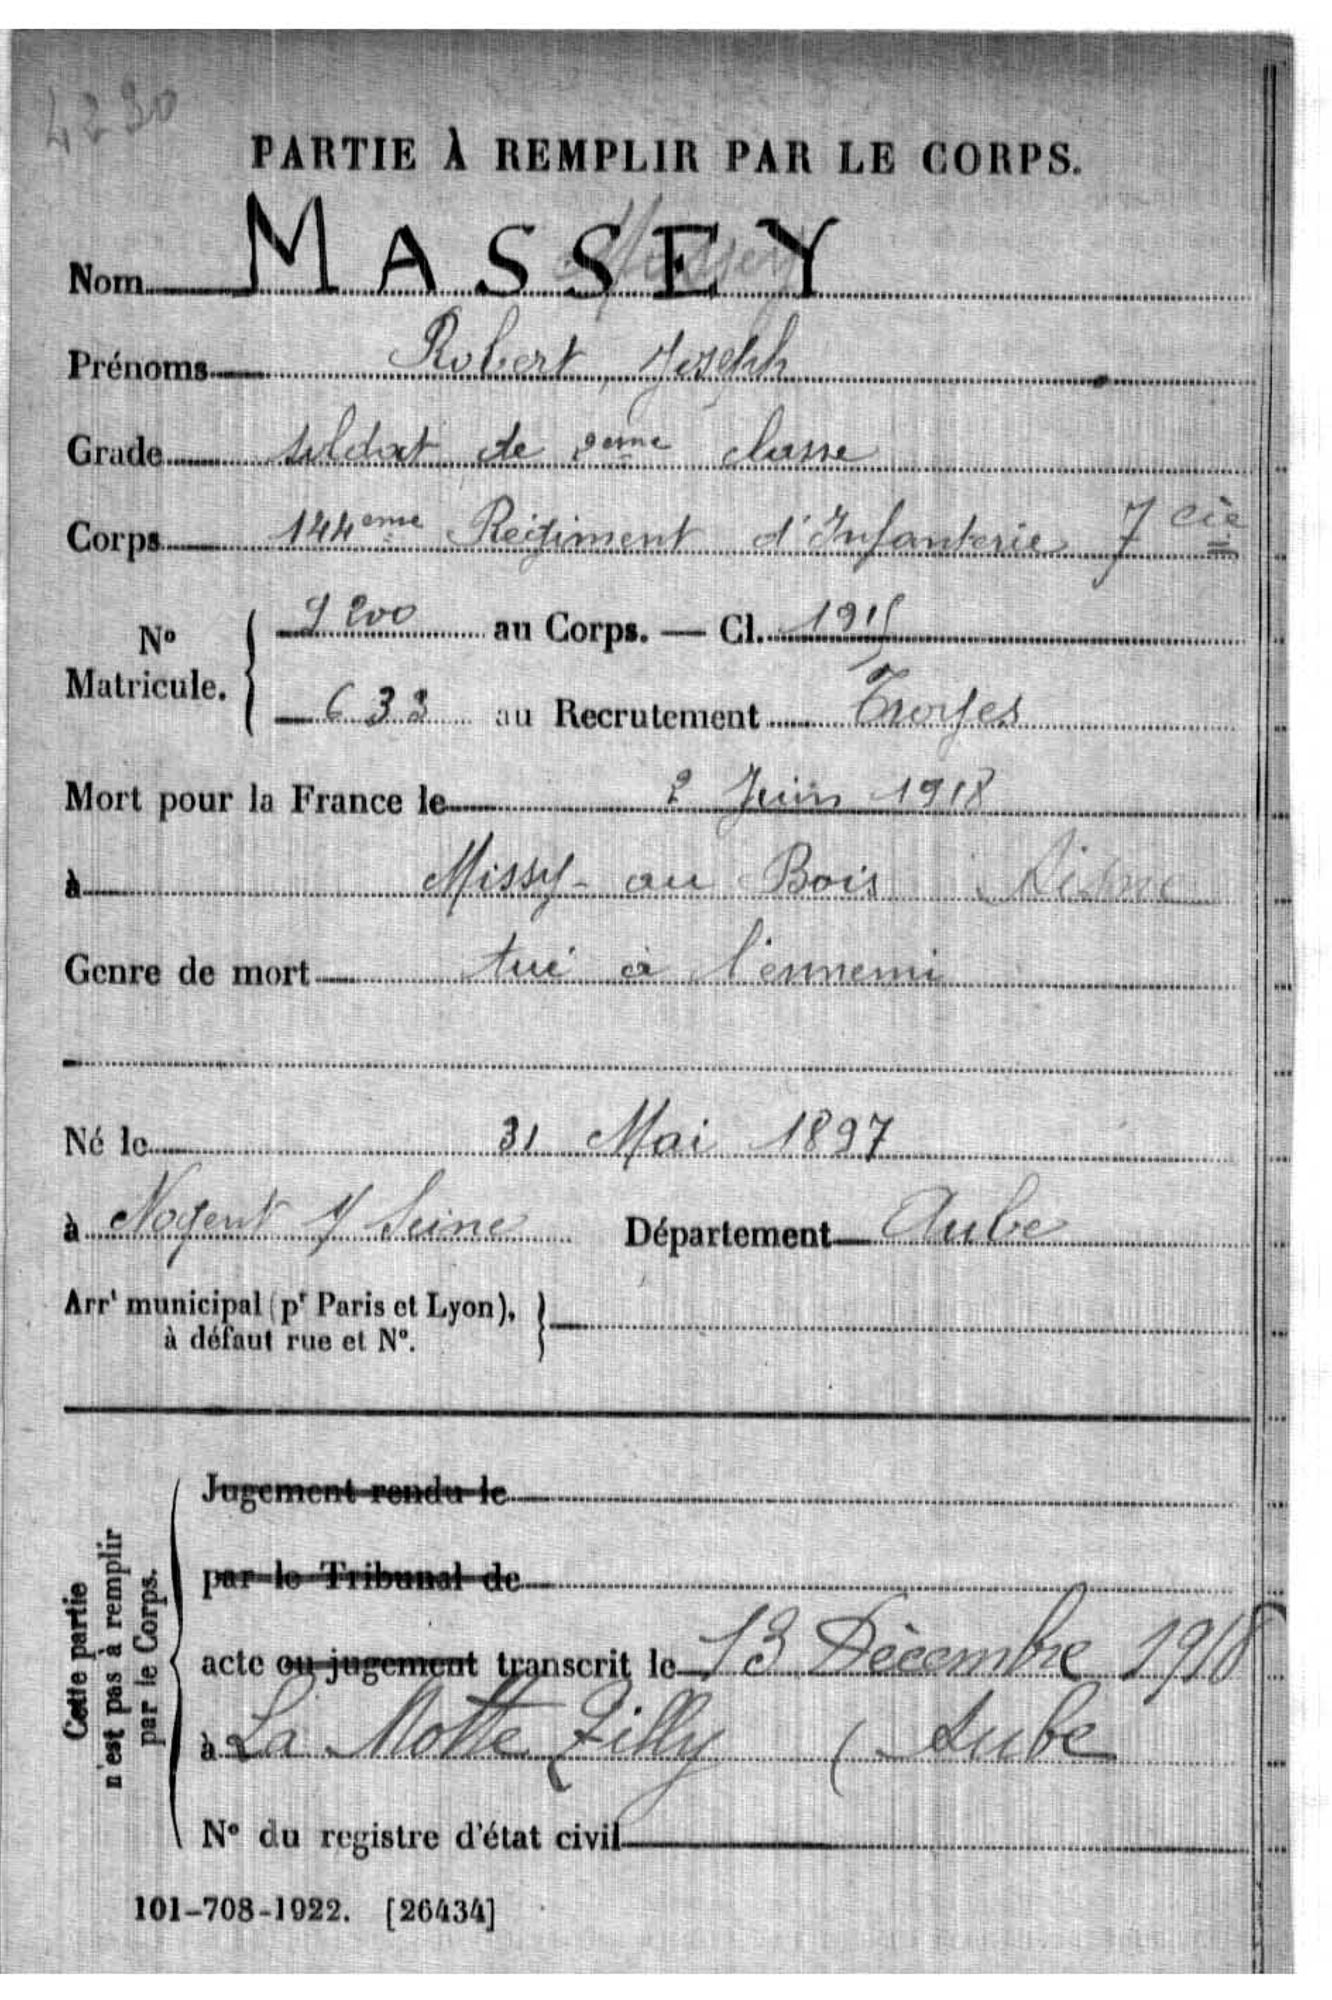 4290
PARTIE À REMPLIR PAR LE CORPS.
Nom MASSEY
Prénoms Robert, Joseph
Grade soldat de 2eme classe
Corps 144eme Régiment d'Infanterie 7 Cie
N° Matricule. { 9200 au Corps. — Cl. 1915
633 au Recrutement Troyes
Mort pour la France le 2 Juin 1918
à Missy-au Bois Aisne
Genre de mort tué à l'ennemi
Né le 31 Mai 1897
à Nogent s/ Seine Département Aube
Arrt municipal (pr Paris et Lyon),
à défaut rue et N°.
Cette partie n'est pas à remplir par le Corps.
Jugement rendu le
par le Tribunal de
acte ou jugement transcrit le 13 Décembre 1918
à La Motte Tilly (Aube
N° du registre d'état civil
101-708-1922. [26434]